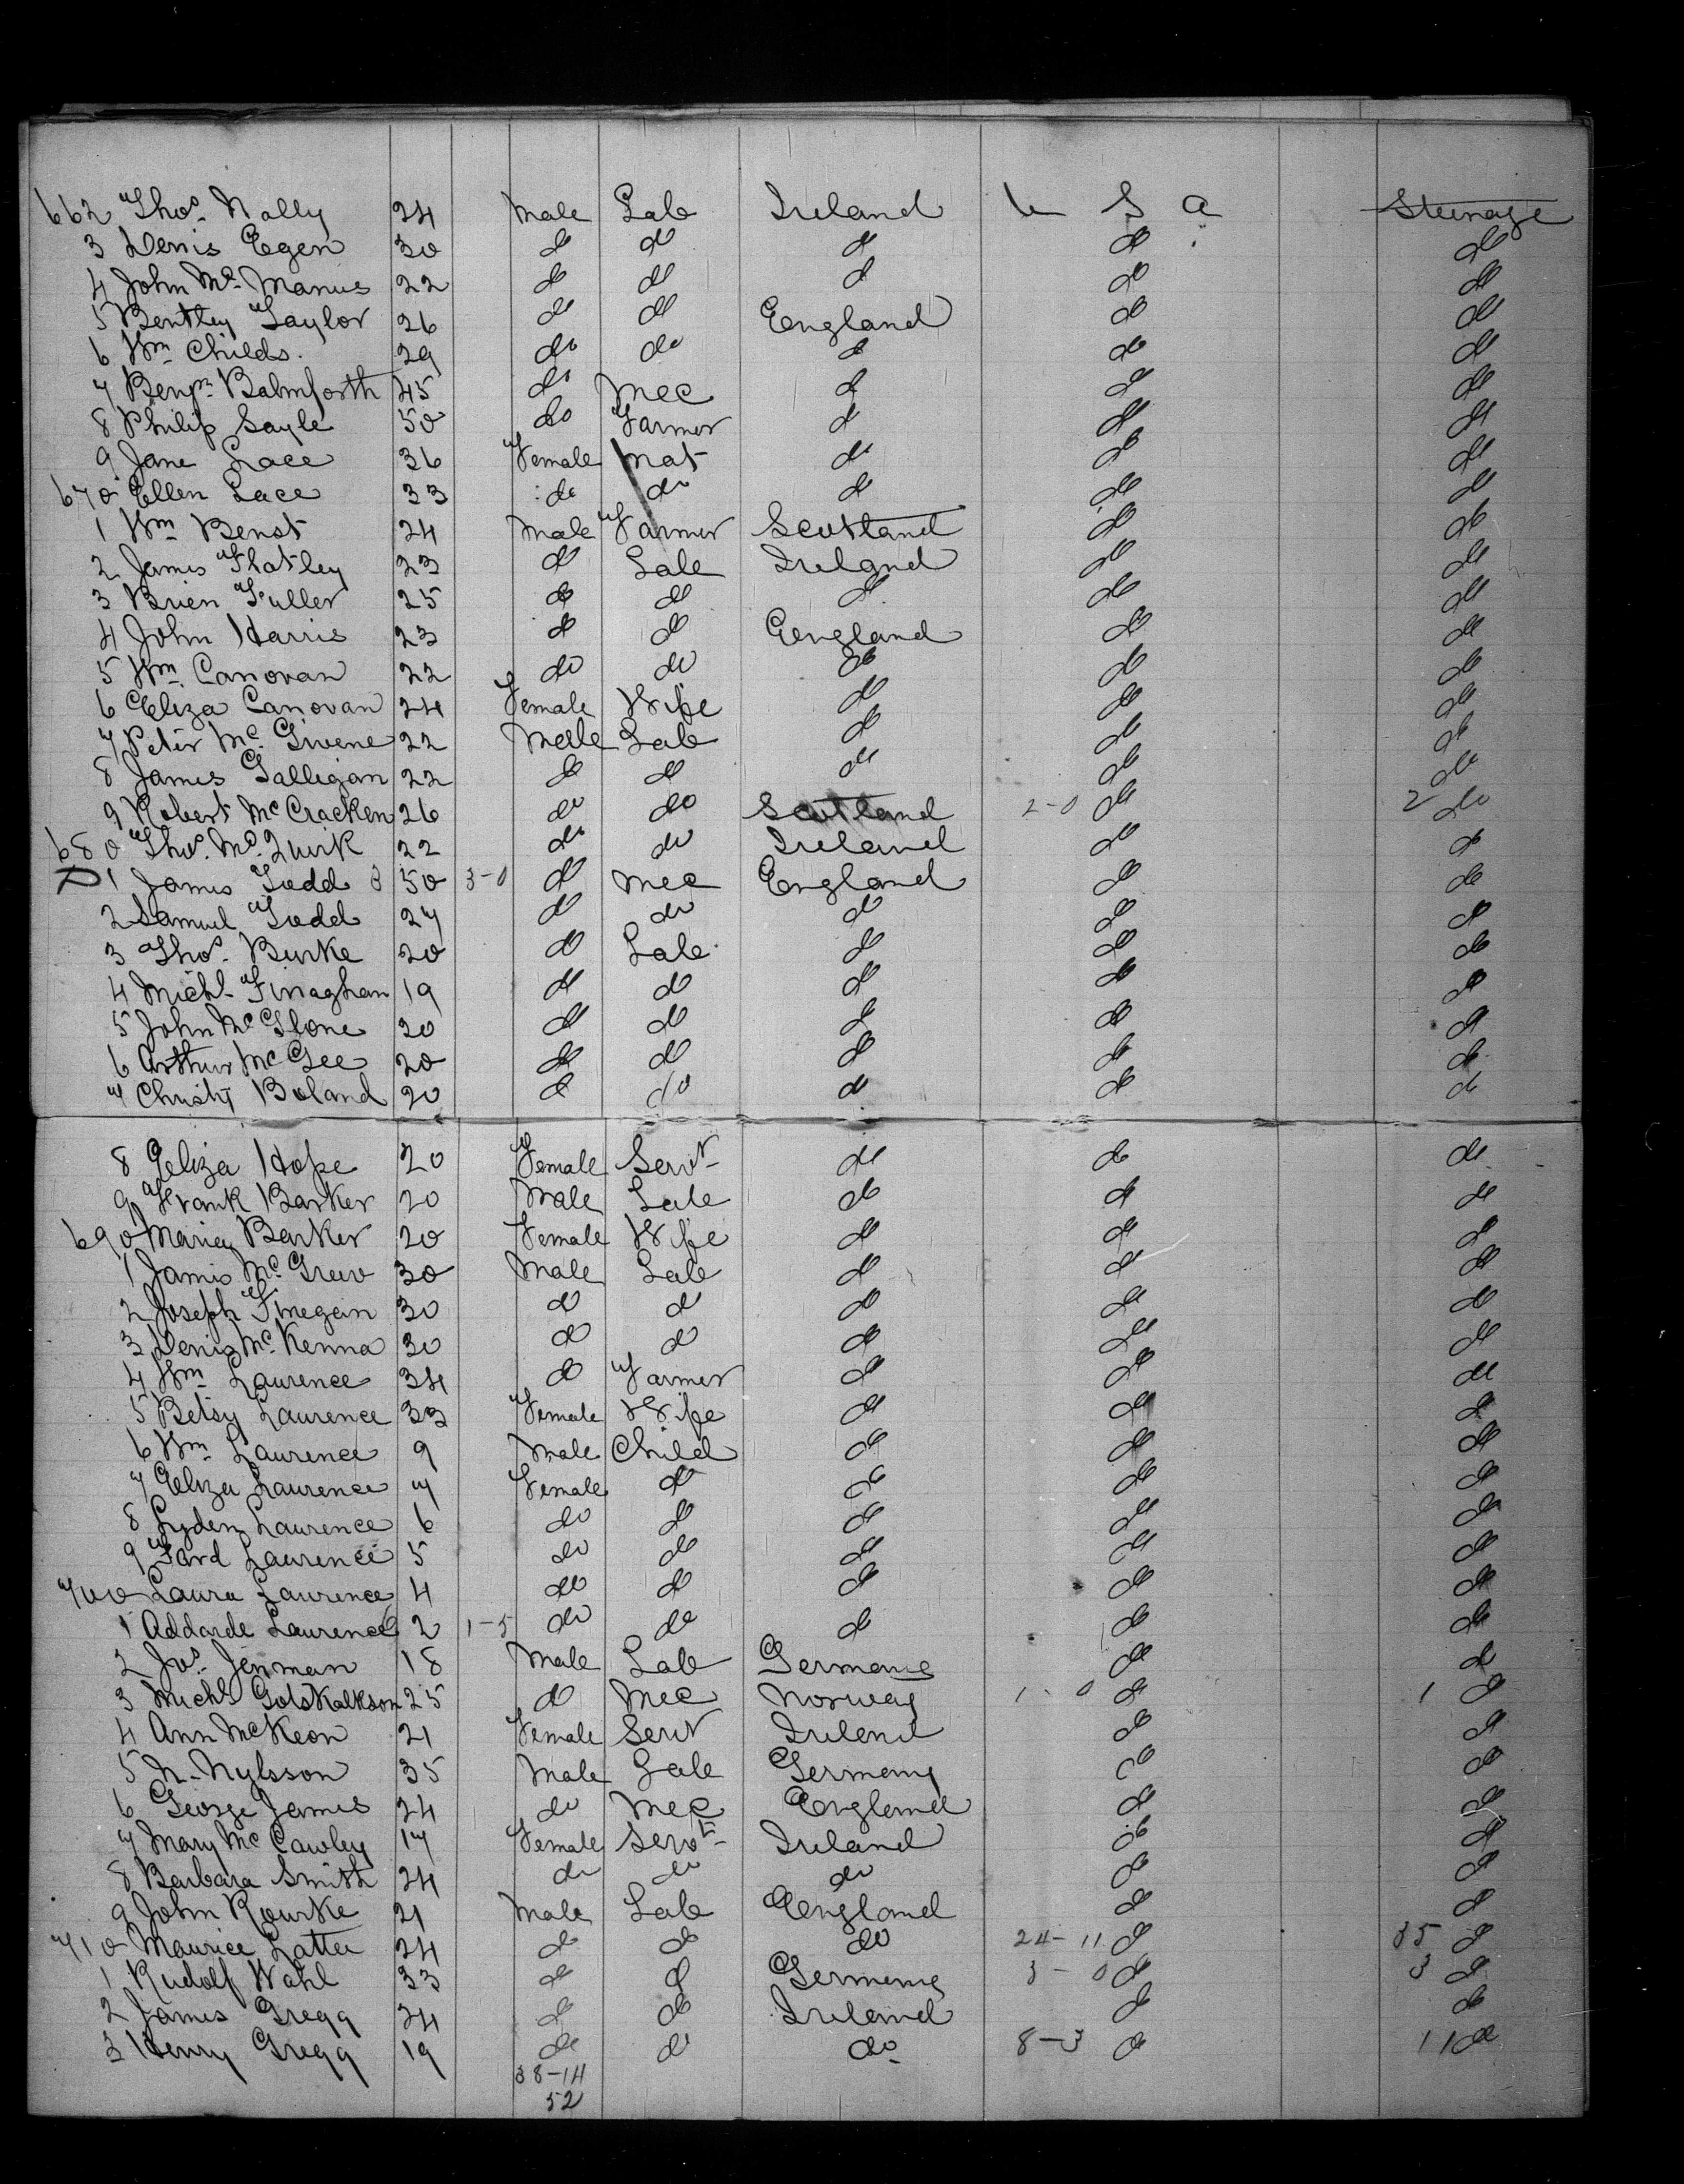 662 Thos. Nally 24 Male Lab Ireland U S A Steerage
3 Denis Egen 30 do do do do do
4 John Mc Manus 22 do do do do do
5 Bentley Taylor 26 do do England do do
6 Wm Childs. 29 do do do do do
7 Benjn. Balmforth 45 do Mec do do do
8 Philip Sayle 50 do Farmer do do do
9 Jane Lace 36 Female Mat do do do
670 Ellen Lace 33 do do do do do
1 Wm Benst 24 Male Farmer Scotland do do
2 James Flatley 23 do Lab Ireland do do
3 Brien Fuller 25 do do do do do
4 John Harris 23 do do England do do
5 Wm. Canovan 22 do do do do do
6 Eliza Canovan 24 Female Wife do do do
7 Peter Mc. 22 Male Lab do do do
8 James Galligan 22 do do do do do
9 Robert McCracken 26 do do Scotland 2-0 do 2 do
680 Thos. Mc. Quirk 22 do do Ireland do do
1 James Todd 3 50 3-0 do Mec England do do
2 Samuel Todd 27 do do do do do
3 Thos. Burke 20 do Lab do do do
4 Michl. Finaghan 19 do do do do do
5 John McGlone 20 do do do do do
6 Arthur McGee 20 do do do do do
7 Christy Boland 20 do do do do do
8 Eliza Hope 20 Female Servt do do do
9 Frank Barker 20 Male Lab do do do
690 Maria Barker 20 Female Wife do do do
1 James Mc. 30 Male Lab do do do
2 Joseph Finegan 30 do do do do do
3 Denis Mc. Kenna 30 do do do do do
4 Wm Laurence 34 do Farmer do do do
5 Betsy Laurence 33 Female Wife do do do
6 Wm Laurence 9 Male Child do do do
7 Eliza Laurence 7 Female do do do do
8 Laurence 6 do do do do do
9 Laurence 5 do do do do do
700 Laura Laurence 4 do do do do do
1 Addarde Laurence 2 1-5 do do do do do
2 Jos. Jenman 18 Male Lab Germany do do
3 Michl Golskalkson 25 do Mec Norway 1-0 do 1 do
4 Ann McKeon 21 Female Servt Ireland do do
5 N. Nylsson 35 Male Lab Germany do do
6 George James 24 do Mec England do do
7 Mary McCawley 17 Female Servt Ireland do do
8 Barbara Smith 24 do do do do do
9 John Rourke 21 Male Lab England do do
710 Maurice Latter 24 do do do 24-11 do 35 do
1 Rudolf Wahl 33 do do Germany 3-0 do 3 do
2 James Gregg 24 do do Ireland do do
3 Henry Gregg 19 do do do 8-3 do 11 do
38-14
52